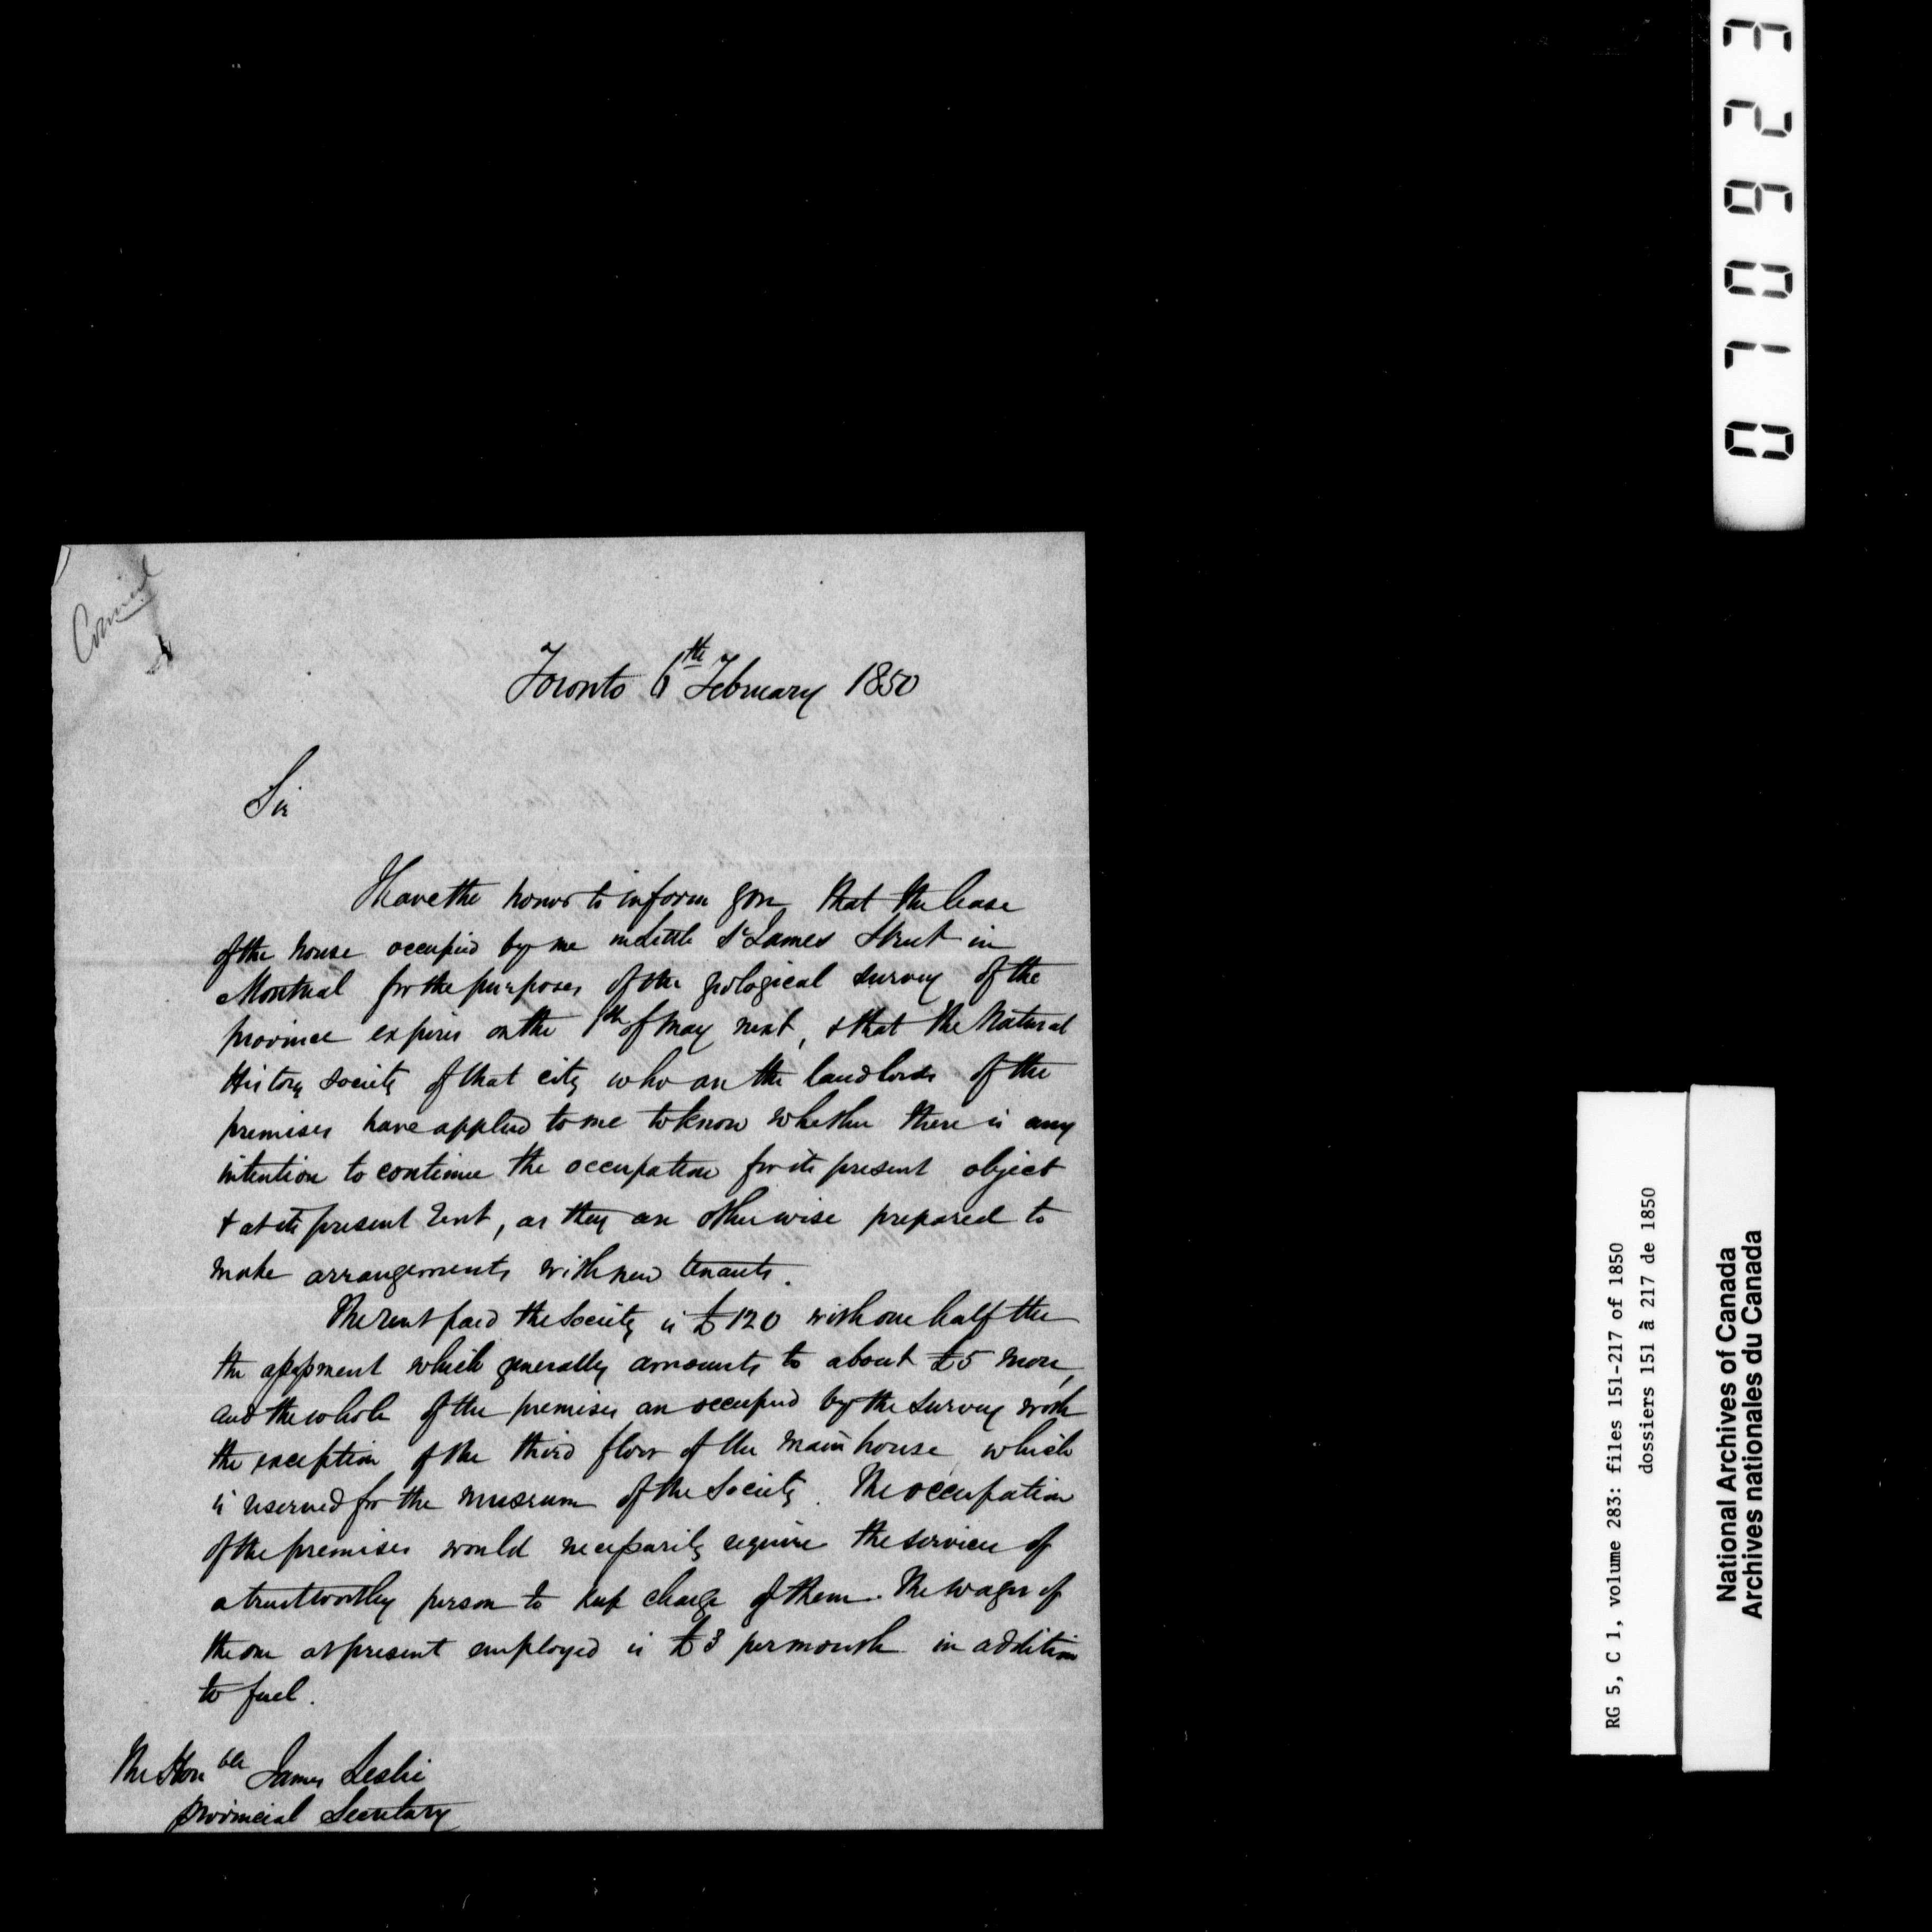 Council
Toronto 6th February 1850
Sir
I have the honor to inform you that the lease
of the house occupied by me in Little St James Street in
Montreal for the purposes of the geological survey of the
province expires on the 1st of May next, & that the Natural
History Society of that city who are the landlords of the
premises have applied to me to know whether there is any
intention to continue the occupation for its present object
& at its present rent, as they are otherwise prepared to
make arrangements with new tenants.
The rent paid the Society is £120 with one half the
the assessment which generally amounts to about £5 more,
and the whole of the premises are occupied by the survey with
the exception of the third floor of the main house which
is reserved for the museum of the Society. The occupation
of the premises would necessarily require the services of
a trustworthy person to keep charge of them. The wages of
the one at present employed is £3 per month in addition
to fuel.
The Honble James Leslie
Provincial Secretary
010923
RG 5, C 1, volume 283: files 151-217 of 1850
dossiers 151 à 217 de 1850
National Archives of Canada
Archives nationales du Canada